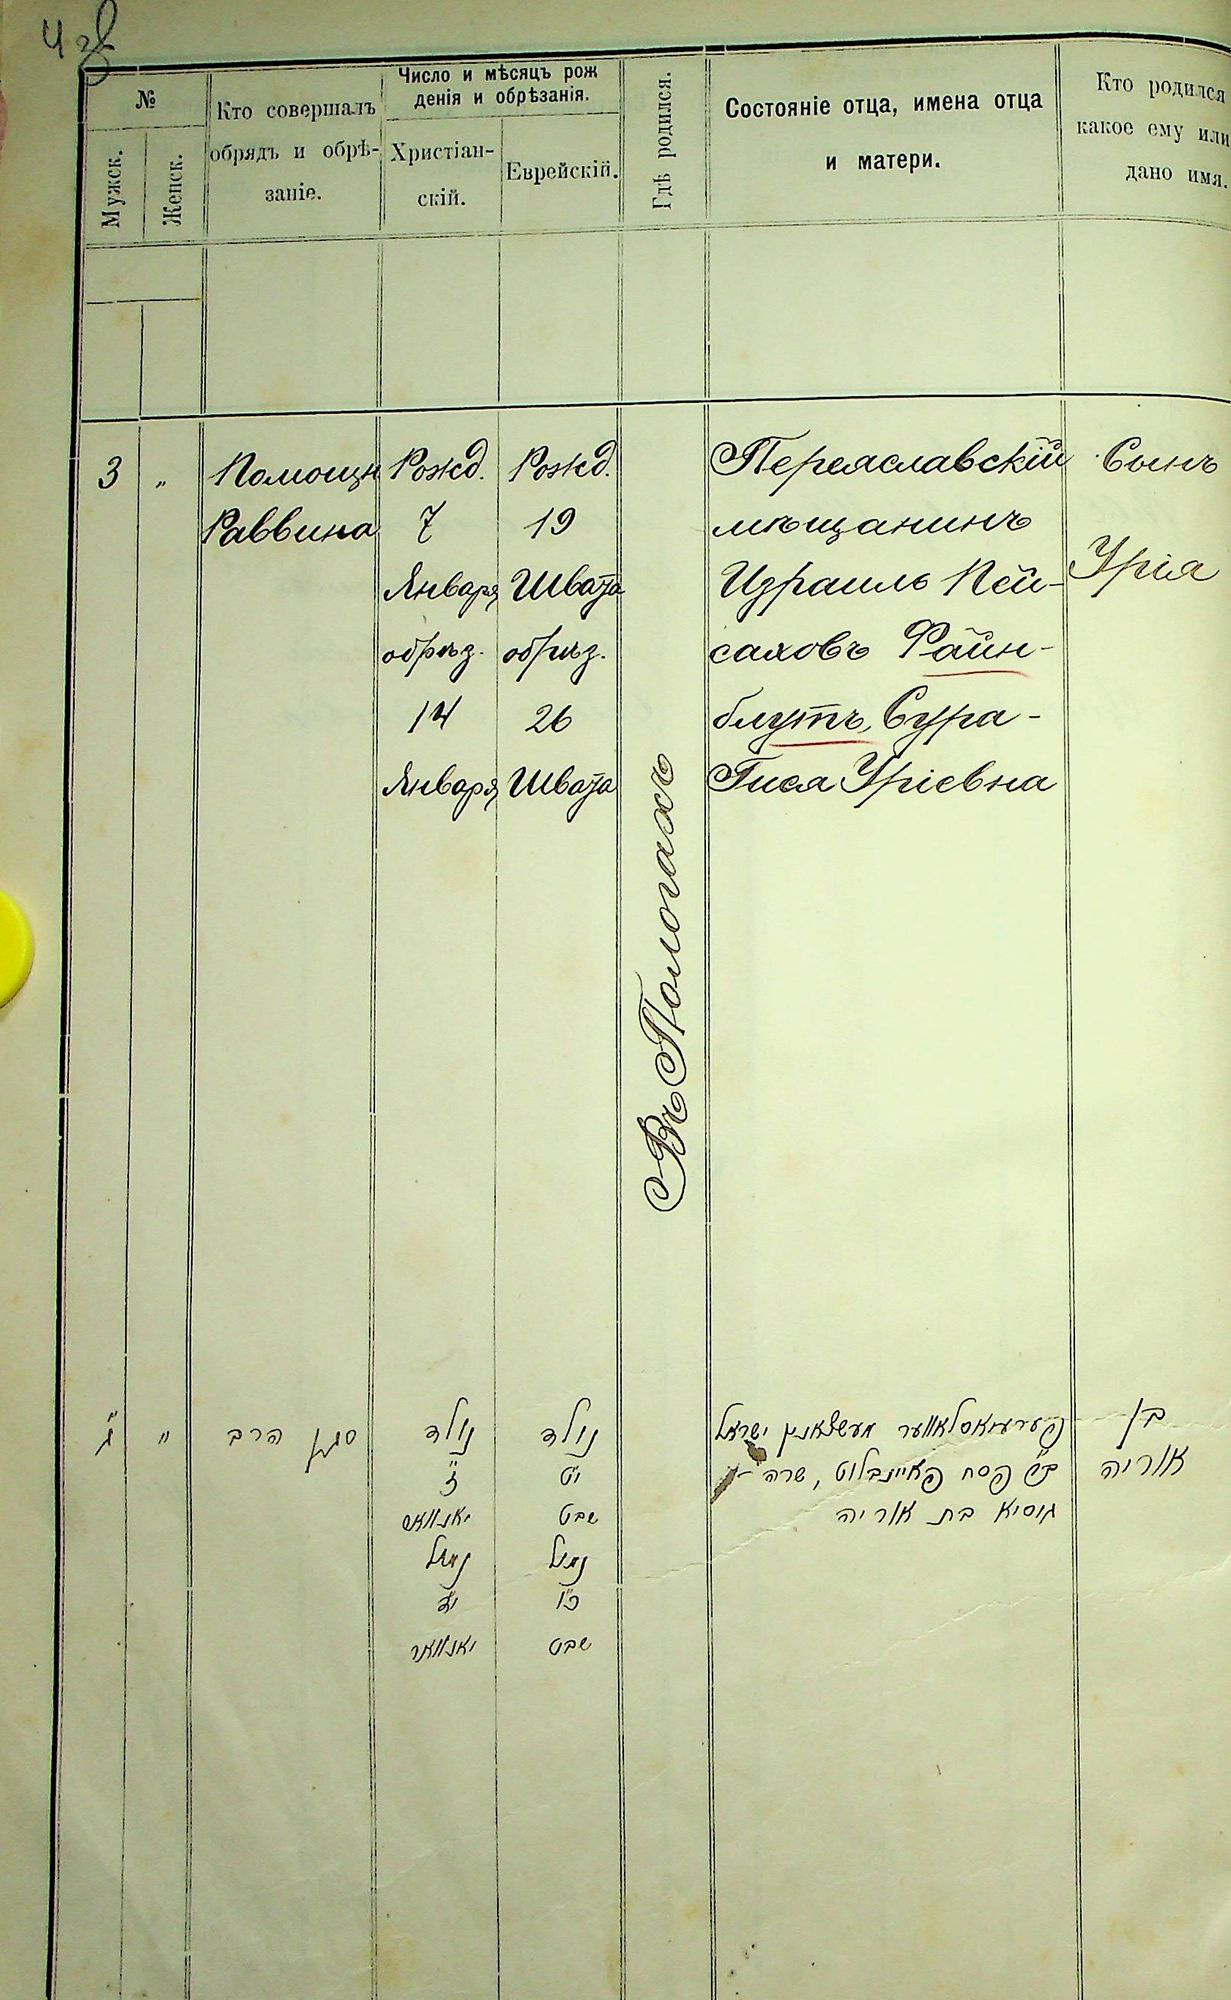 №
Мужск.
Женск.
Кто совершалъ
обрядъ и обрѣ-
заніе.
Число и мѣсяцъ рож
денія и обрѣзанія.
Христіан-
скій.
Еврейскій.
Гдѣ родился.
Состояніе отца, имена отца
и матери.
Кто родился
какое ему или
дано имя.
3
"
Помощн
Раввина
Рожд.
7
Января
обрѣз.
14
Января
Рожд.
19
Швата
обрѣз.
26
Швата
Въ Пологахъ
Переяславскій
мѣщанинъ
Израиль Пей-
саховъ Файн-
блутъ, Сура-
Гися Уріевна
Сынъ
Урія
ג"
"
סגן הרב
נולד
ז"
יאנוואר
נמול
י"ד
יאנוואר
נולד
י"ט
שבט
נמול
כ"ו
שבט
פערעיאסלאווער מעשצאנין ישראל
ב"ר פסח פאיינבלוט, שרה-
גיסיא בת אוריה
בן
אוריה